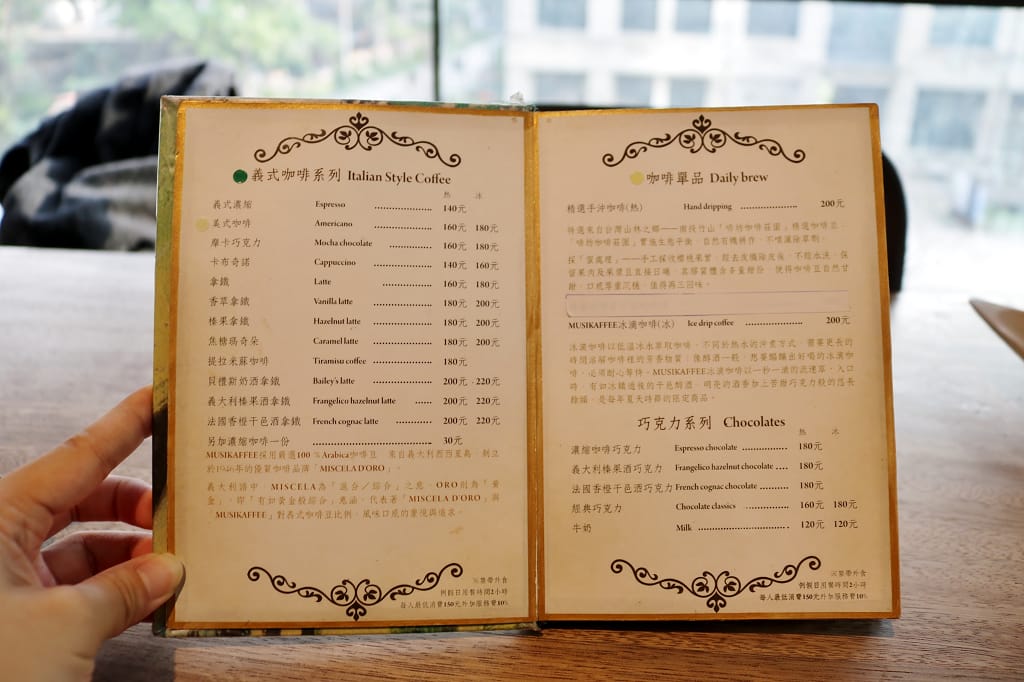 義式咖啡系列 Italian Style Coffee
熱 冰
義式濃縮 Espresso 140元
美式咖啡 Americano 160元 180元
摩卡巧克力 Mocha chocolate 160元 180元
卡布奇諾 Cappuccino 140元 160元
拿鐵 Latte 160元 180元
香草拿鐵 Vanilla latte 180元 200元
榛果拿鐵 Hazelnut latte 180元 200元
焦糖瑪奇朵 Caramel latte 180元 200元
提拉米蘇咖啡 Tiramisu coffee 180元
貝禮斯奶酒拿鐵 Bailey's latte 200元 220元
義大利榛果酒拿鐵 Frangelico hazelnut latte 200元 220元
法國香橙干邑酒拿鐵 French cognac latte 200元 220元
另加濃縮咖啡一份 30元
MUSIKAFFEE採用嚴選100%Arabica咖啡豆 來自義大利西西里島，創立
於1946年的優質咖啡品牌「MISCELA D'ORO」。
義大利語中，MISCELA為「混分／綜合」之意，ORO則為「黃
金」，即「有如黃金般綜合」意涵，代表著「MISCELA D'ORO」與
「MUSIKAFFEE」對義式咖啡豆比例、風味口感的重視與追求。
禁帶外食
例假日用餐時間2小時
每人最低消費150元外加服務費10%
咖啡單品 Daily brew
精選手沖咖啡(熱) Hand dripping 200元
特選來自台灣山林之鄉——南投竹山「啡坊咖啡莊園」精選咖啡豆。
「啡坊咖啡莊園」實施生態平衡，自然有機耕作，不噴灑除草劑。
採「蜜處理」——手工採收櫻桃果實，經去皮機除皮後，不經水洗，保
留果肉及果漿且直接日曬，其膠質體含多量醣份，使得咖啡豆自然甘
甜，口感厚重沉穩，值得再三回味。
MUSIKAFFEE冰滴咖啡(冰) Ice drip coffee 200元
冰滴咖啡以低溫冰水萃取咖啡，不同於熱水的沖煮方式，需要更長的
時間溶解咖啡裡的芳香物質；像醇酒一般，想要醞釀出好喝的冰滴咖
啡，必須耐心等待。MUSIKAFFEE冰滴咖啡以一秒一滴的流速萃，入口
時，有如冰鎮過後的干邑醇酒，明亮的酒香加上苦甜巧克力般的悠長
餘韻，是每年夏天時節的限定商品。
巧克力系列 Chocolates
熱 冰
濃縮咖啡巧克力 Espresso chocolate 180元
義大利榛果酒巧克力 Frangelico hazelnut chocolate 180元
法國香橙干邑酒巧克力 French cognac chocolate 180元
經典巧克力 Chocolate classics 160元 180元
牛奶 Milk 120元 120元
禁帶外食
例假日用餐時間2小時
每人最低消費150元外加服務費10%